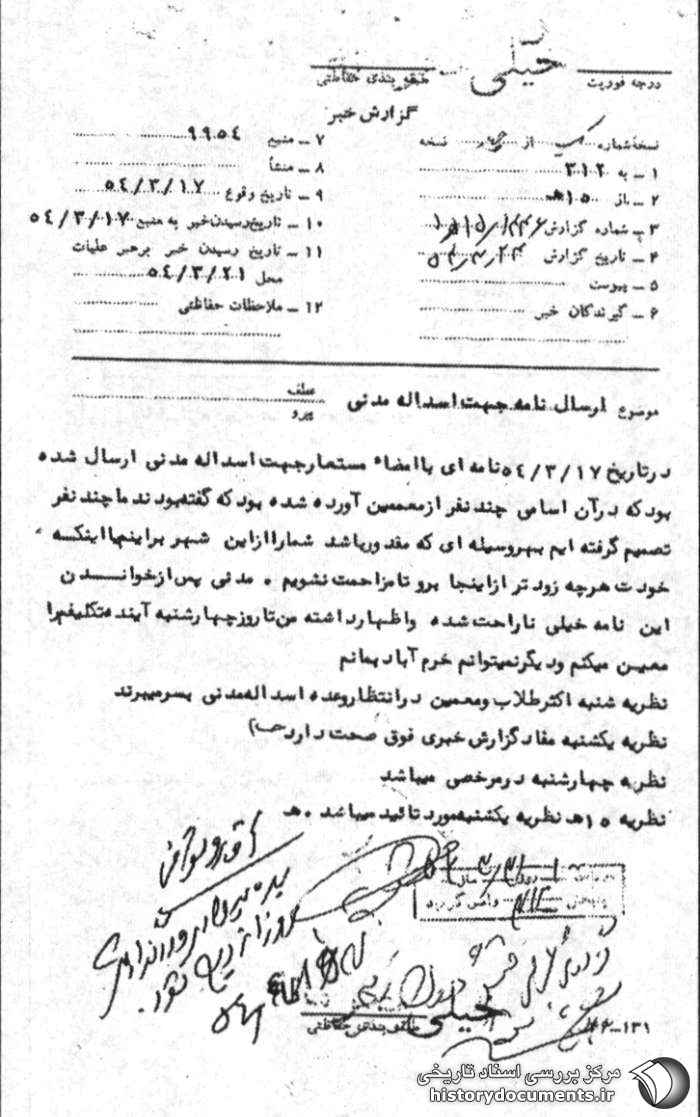 خیلی
درجه فوریت
طبقه بندی حفاظتی
گزارش خبر
نسخه شماره از نسخه
۱ ــ به ۳۱۲
۲ ــ از ۱۵ هـ
۳ ــ شماره گزارش
۴ ــ تاریخ گزارش
۵ ــ پیوست
۶ ــ گیرندگان خبر
۷ ــ منبع ۹۹۵۴
۸ ــ منشأ
۹ ــ تاریخ وقوع ۵۴/۳/۱۷
۱۰ ــ تاریخ رسیدن خبر به منبع ۵۴/۳/۱۷
۱۱ ــ تاریخ رسیدن خبر برهبر عملیات
محل ۵۴/۳/۲۱
۱۲ ــ ملاحظات حفاظتی
موضوع ارسال نامه جهت اسداله مدنی
عطف
پیرو
در تاریخ ۵۴/۳/۱۷ نامه ای با امضاء مستعار جهت اسداله مدنی ارسال شده
بود که در آن اسامی چند نفر از معممین آورده شده بود که گفته بودند ما چند نفر
تصمیم گرفته ایم بهر وسیله ای که مقدور باشد شما را از این شهر برانیم یا اینکه
خودت هرچه زودتر از اینجا برو تا مزاحمت نشویم ۰ مدنی پس از خواندن
این نامه خیلی ناراحت شده و اظهار داشته من تا روز چهارشنبه آینده تکلیفم را
معین میکنم و دیگر نمیتوانم خرم آباد بمانم
نظریه شنبه اکثر طلاب و معممین در انتظار وعده اسداله مدنی بسر میبرند
نظریه یکشنبه مفاد گزارش خبری فوق صحت دارد
نظریه چهارشنبه در مرخصی میباشد
نظریه ۱۵ هـ نظریه یکشنبه مورد تائید میباشد ۰ هـ
خیلی
طبقه بندی حفاظتی
۱۳۱
مرکز بررسی اسناد تاریخی
historydocuments.ir